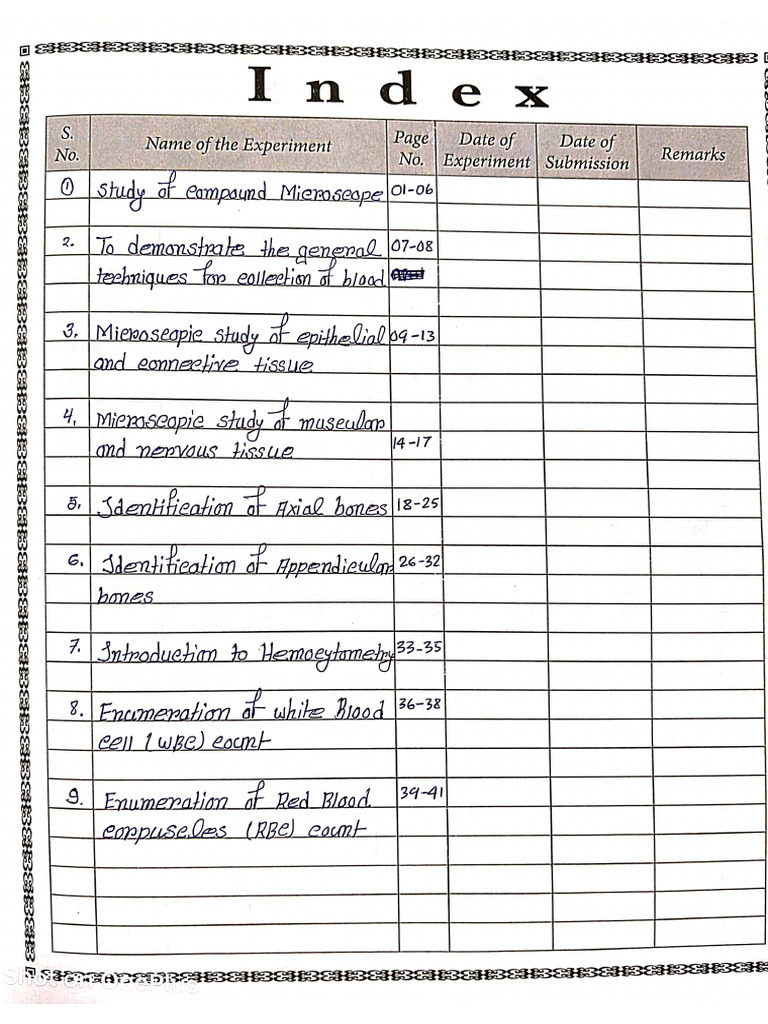 Index
S. No. Name of the Experiment Page No. Date of Experiment Date of Submission Remarks
① Study of compound Microscope 01-06
2. To demonstrate the general 07-08
techniques for collection of blood
3. Microscopic study of epithelial 09-13
and connective tissue
4. Microscopic study of muscular
and nervous tissue 14-17
5. Identification of Axial bones 18-25
6. Identification of Appendicular 26-32
bones
7. Introduction to Hemocytometry 33-35
8. Enumeration of white Blood 36-38
cell (WBC) count
9. Enumeration of Red Blood 39-41
corpuscles (RBC) count
Shot on OnePlus